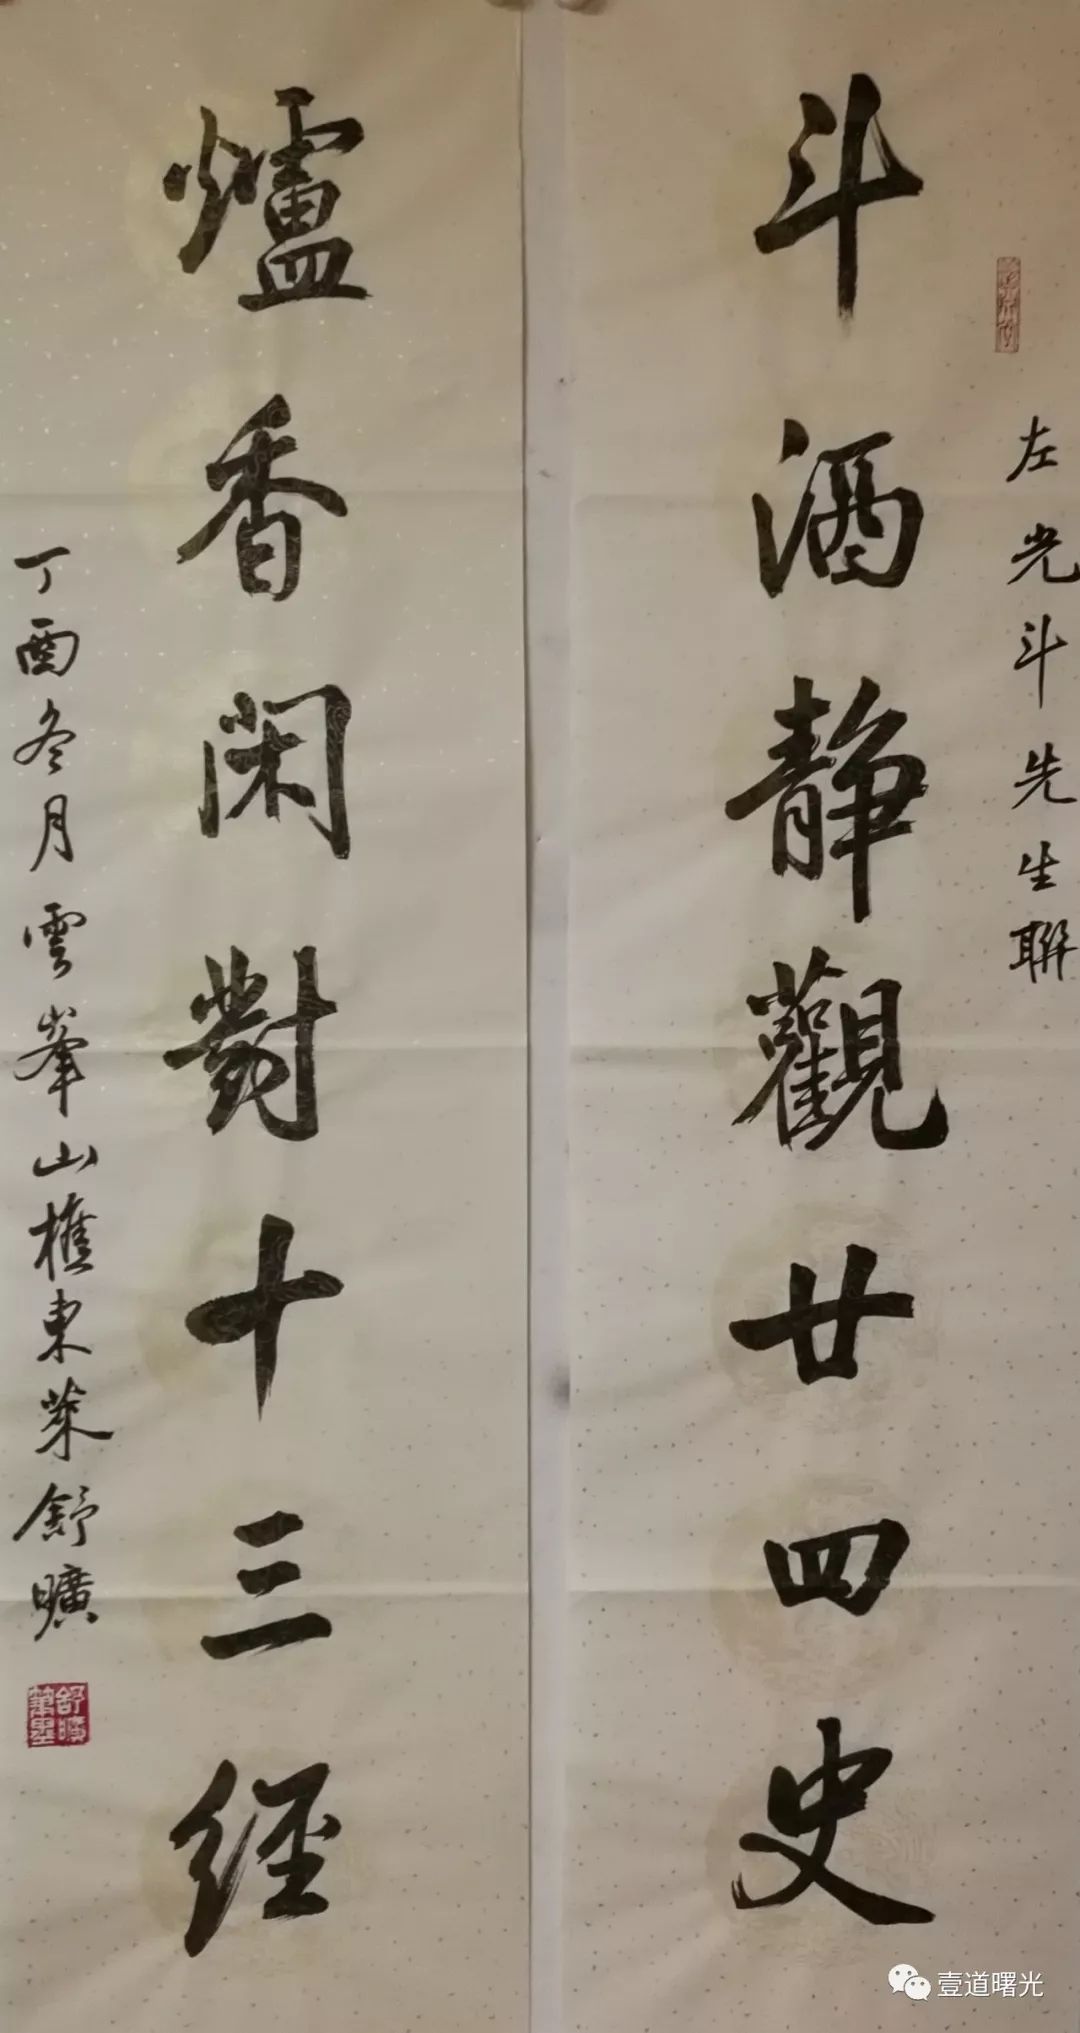 左光斗先生聯
斗酒靜觀廿四史
爐香閑對十三經
丁酉冬月雲峯山樵東萊舒曠
壹道曙光